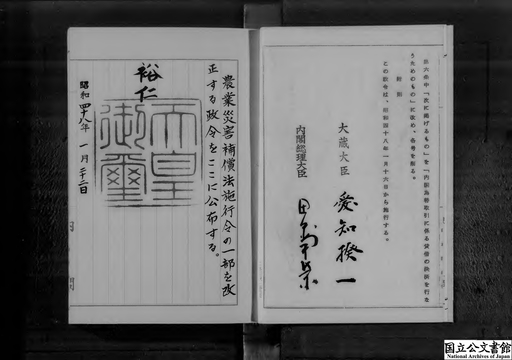 別六命中「次に掲げるもの」を「内国為替取引に係る貸借の決済を行な
うためのもの」に改め、各号を削る。
附則
この政令は、昭和四十八年一月十六日から施行する。
大蔵大臣 愛知揆一
内閣総理大臣 田中角榮
農業災害補償法施行令の一部を改
正する政令をここに公布する。
裕仁
天皇御璽
昭和四十八年一月二十三日
国立公文書館
National Archives of Japan